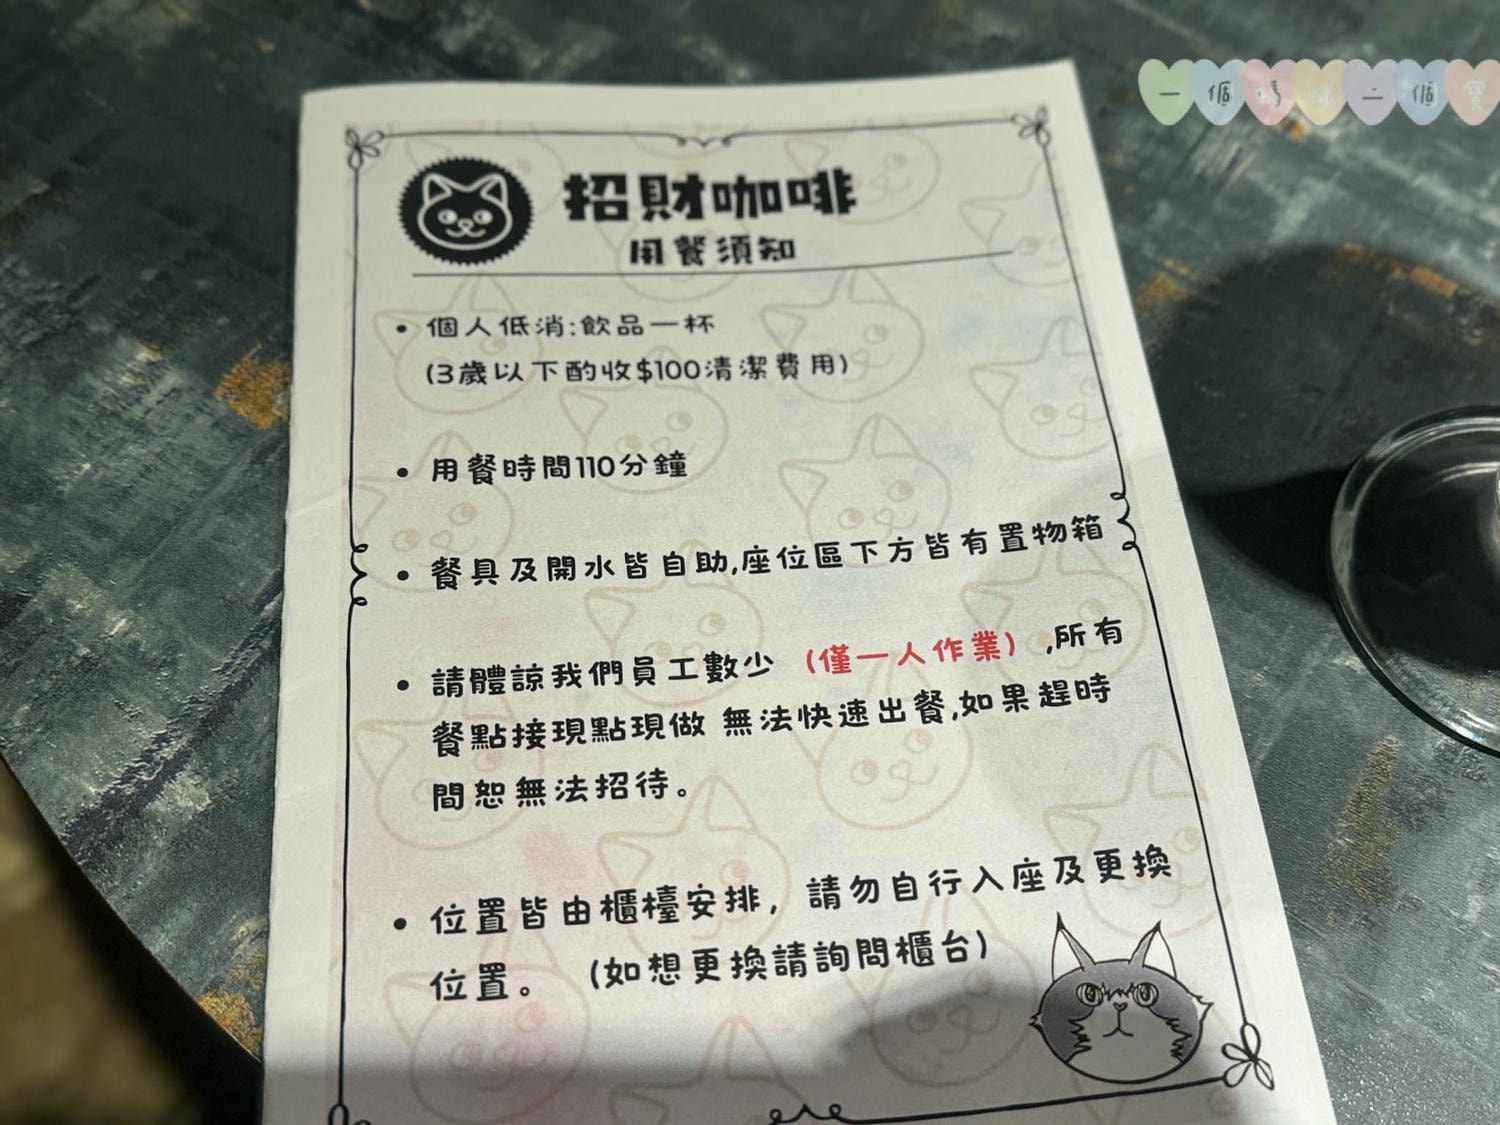 一個媽咪二個寶
招財咖啡
用餐須知
• 個人低消:飲品一杯
(3歲以下酌收$100清潔費用)
• 用餐時間110分鐘
• 餐具及開水皆自助,座位區下方皆有置物箱
• 請體諒我們員工數少 (僅一人作業) ,所有
餐點接現點現做 無法快速出餐,如果趕時
間恕無法招待。
• 位置皆由櫃檯安排，請勿自行入座及更換
位置。 (如想更換請詢問櫃台)